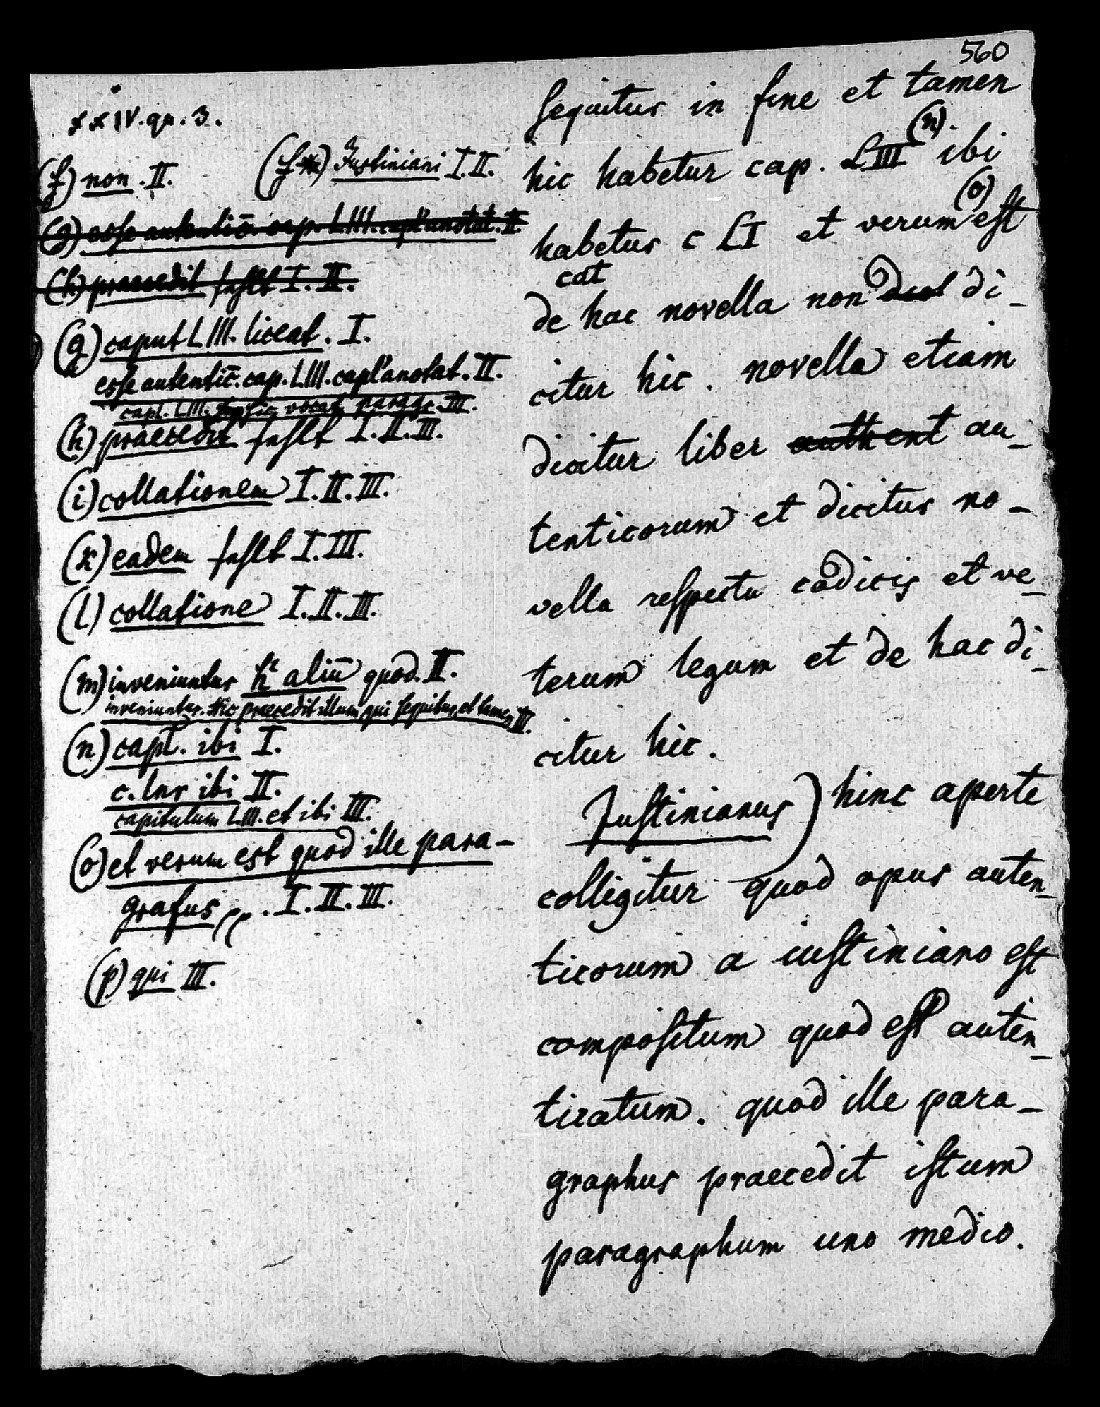 560
xxIV. qu. 3.
(f) non. II.
(f**) Justiniani I. II.
(g) esse autentic̄. cap. LIII. capl' anotat. II.
(h) praecedit fehlt I. II.
(g) caput LIII. liceat. I.
esse autentic̄. cap. LIII. capl' anotat. II.
capl. LIII. vocat. paragr. III.
(h) praecedit fehlt I. II. III.
(i) collationem I. II. III.
(k) eadem fehlt I. III.
(l) collatione I. II. III.
(m) inveniuntur hc aliū quod. II.
inveniuntur. hic praecedit illum qui sequitur et tamen III.
(n) capl. ibi I.
c. lnr ibi II.
capitulum LIII. et ibi III.
(o) et verum est quod ille para-
grafus pp. I. II. III.
(p) qui III.
sequitur in fine et tamen
hic habetur cap. LIII (n) ibi
habetur c LI et verum (o) est
cat
de hac novella non dicl di-
citur hic. novella etiam
dicitur liber authent au-
tenticorum et dicitur no-
vella respectu codicis et ve-
terum legum et de hac di-
citur hic.
Justinianus) hinc aperte
colligitur quod opus auten-
ticorum a iustiniano est
compositum quod est (p) auten-
ticatum. quod ille para-
graphus praecedit istum
paragraphum uno medio.